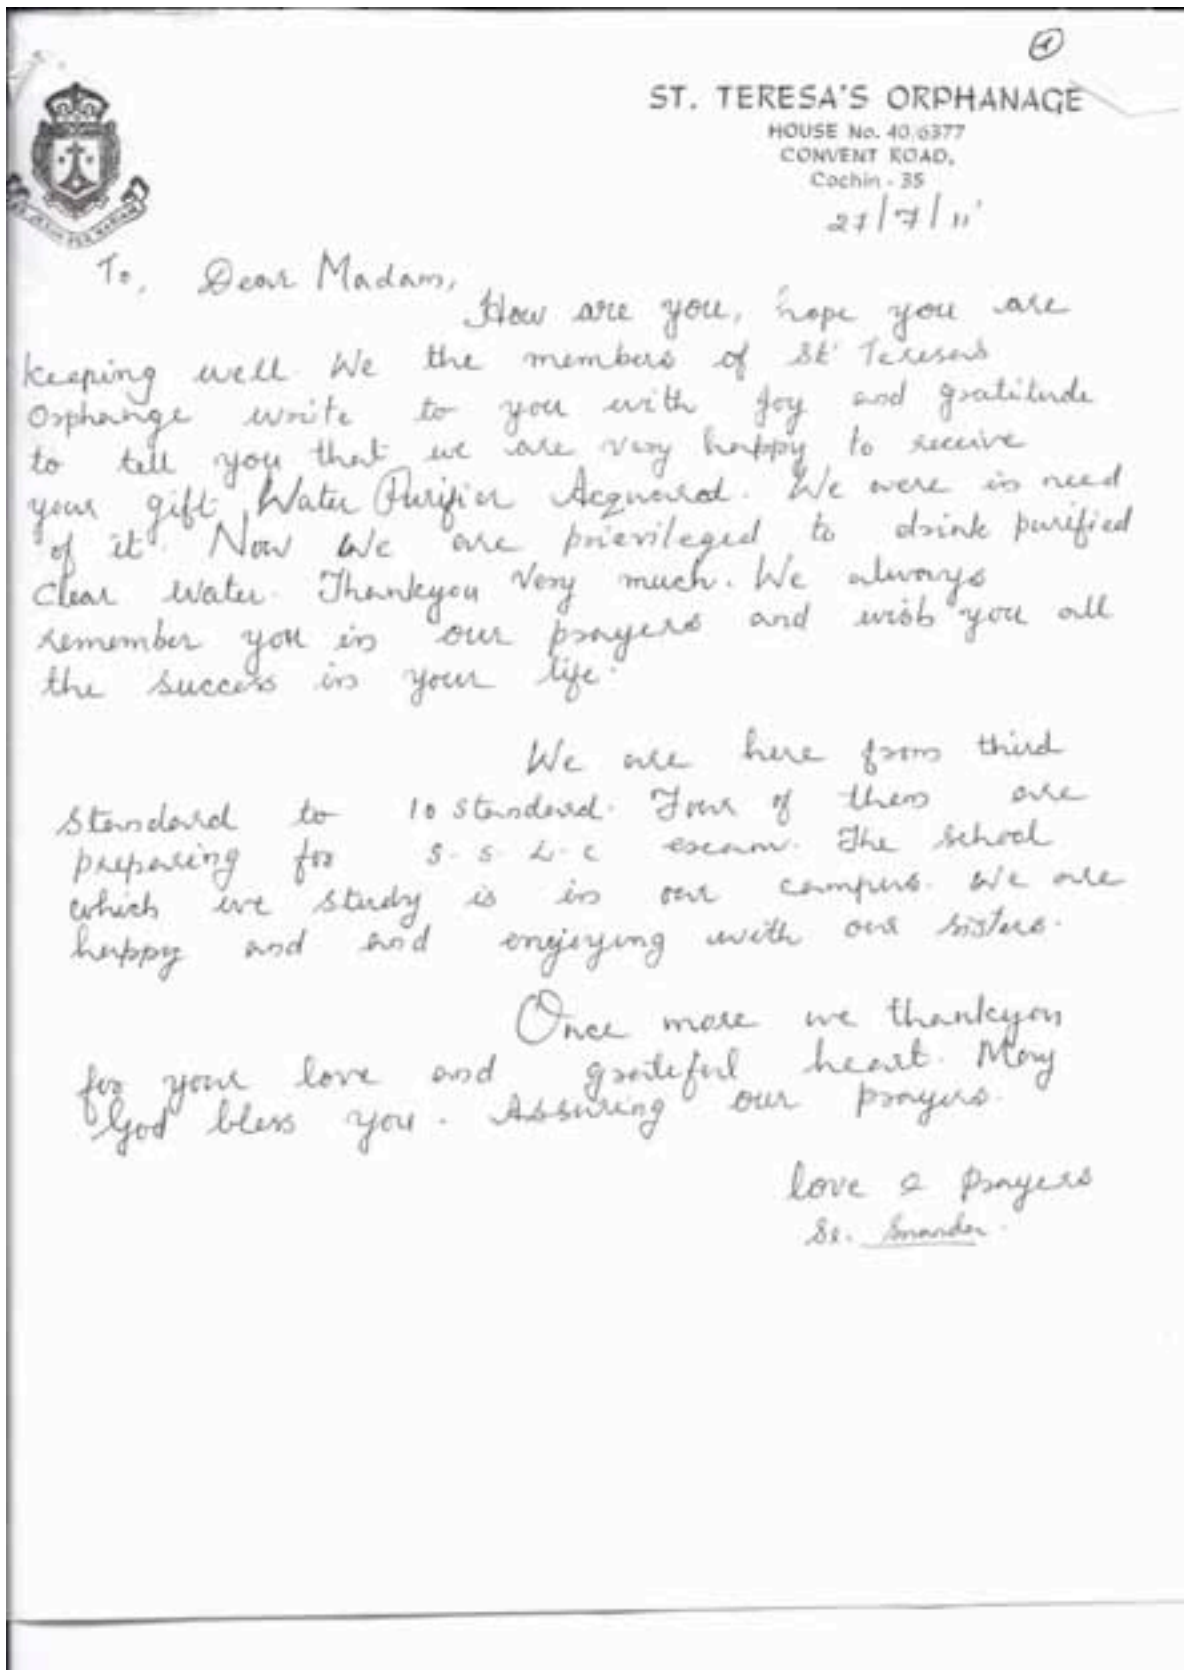 1
ST. TERESA'S ORPHANAGE
HOUSE No. 40/6377
CONVENT ROAD,
Cochin - 35
27/7/11'
To, Dear Madam,
How are you, hope you are
keeping well. We the members of St' Teresa's
Orphange write to you with joy and gratitude
to tell you that we are very happy to receive
your gift Water Purifier Acquard. We were in need
of it. Now We are prievileged to drink purified
Clear Water. Thankyou Very much. We always
remember you in our prayers and wish you all
the success in your life.
We are here from third
Standard to 10 Standard. Four of them are
preparing for S. S. L. C excam. The school
which we study is in our campus. We are
happy and and enjoying with our sisters.
Once more we thankyou
for your love and grateful heart. May
God bless you. Assuring our prayers.
love & prayers
Sr.